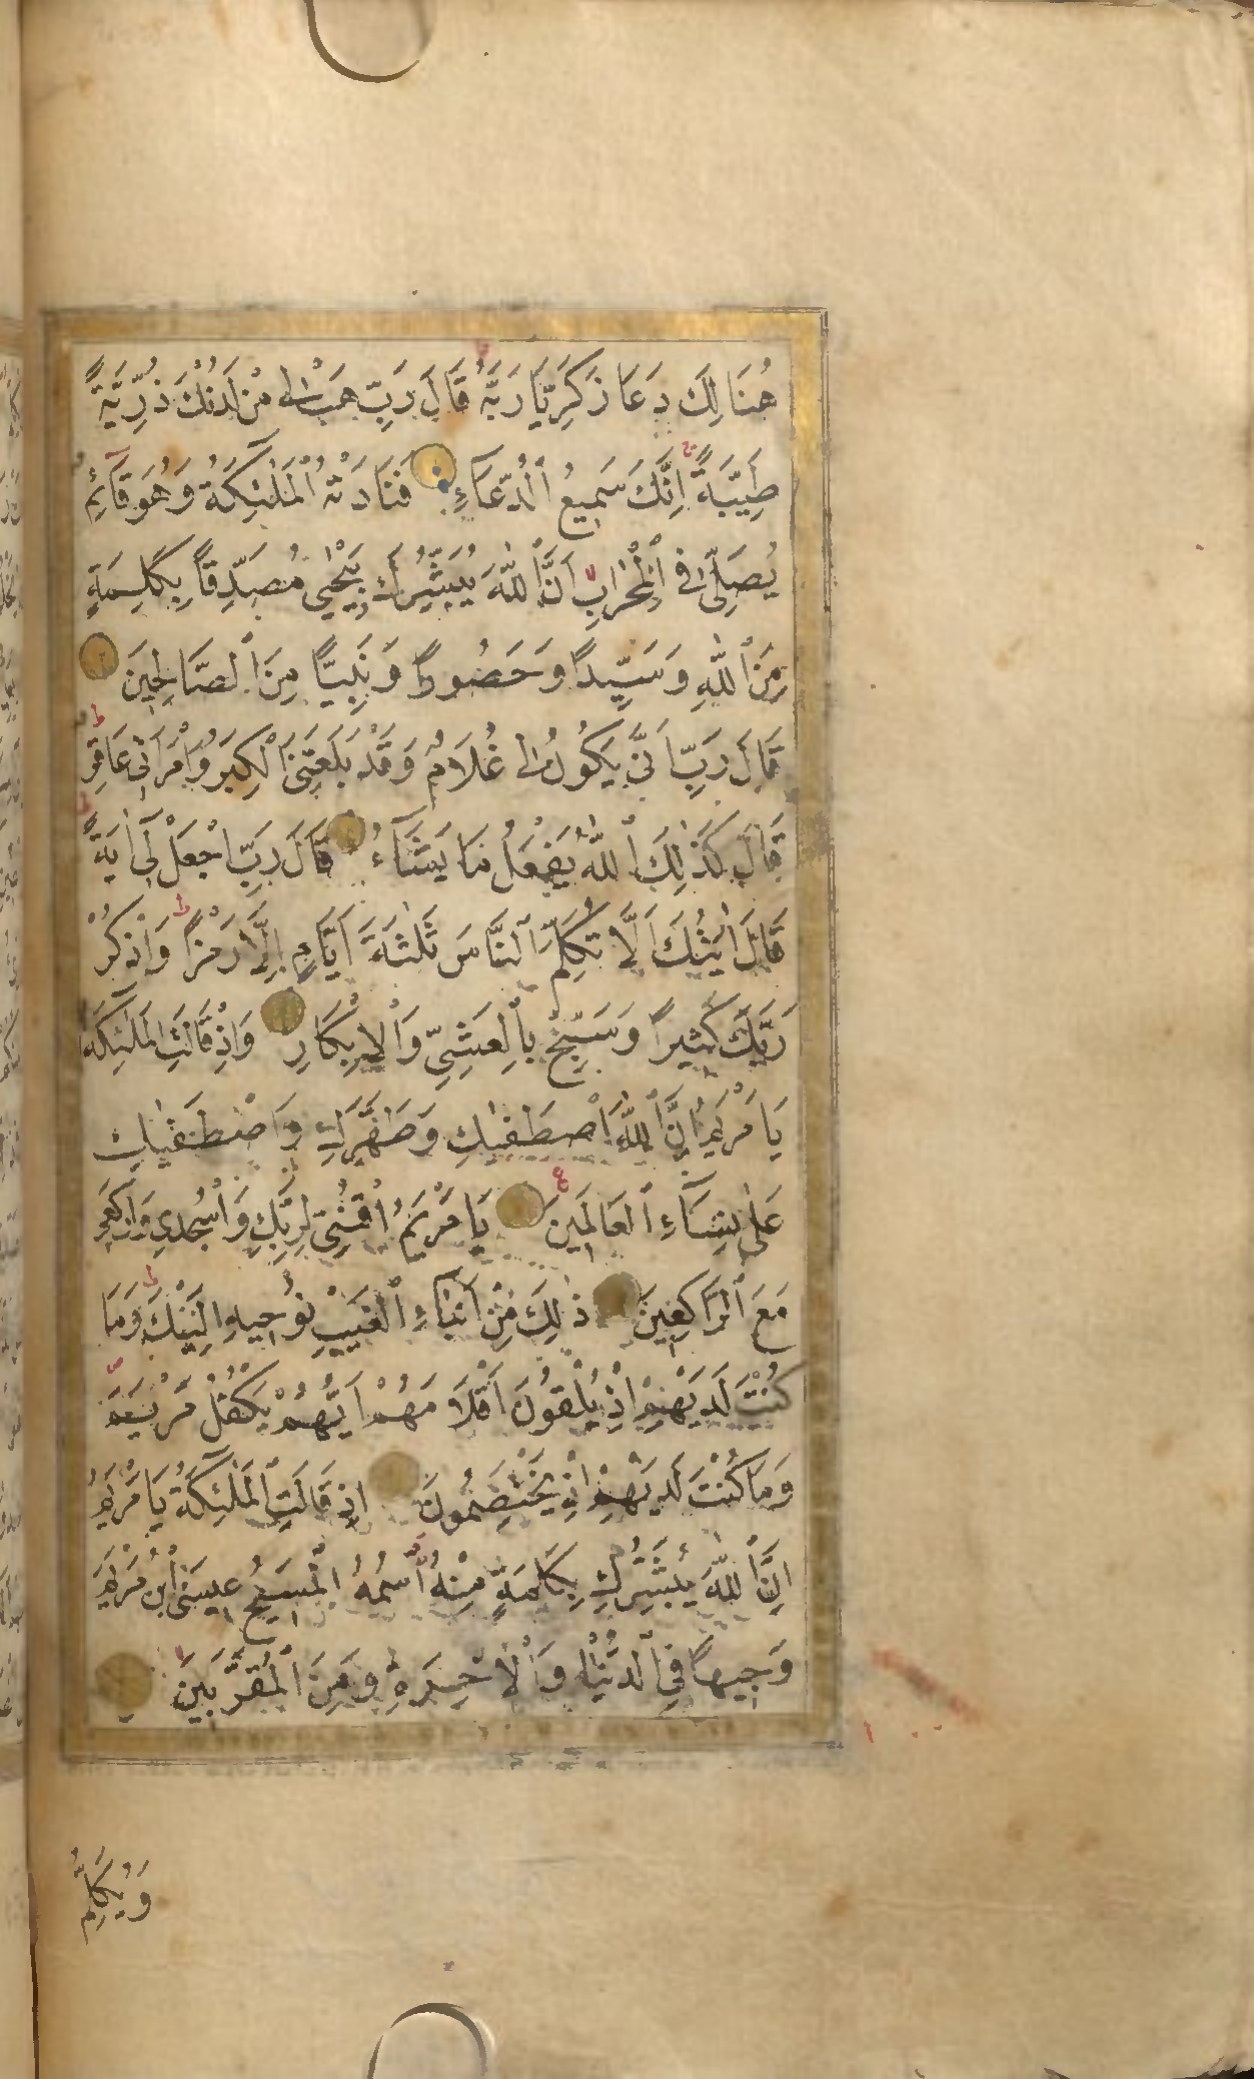 هُنَالِكَ دَعَا زَكَرِيَّا رَبَّهُ قَالَ رَبِّ هَبْ لِي مِنْ لَدُنْكَ ذُرِّيَّةً
طَيِّبَةً اِنَّكَ سَمِيعُ الدُّعَآءِ فَنَادَتْهُ الْمَلٰئِكَةُ وَهُوَ قَآئِمٌ
يُصَلِّى فِى الْمِحْرَابِ اَنَّ اللّٰهَ يُبَشِّرُكَ بِيَحْيٰى مُصَدِّقًا بِكَلِمَةٍ
مِنَ اللّٰهِ وَسَيِّدًا وَحَصُورًا وَنَبِيًّا مِنَ الصَّالِحِينَ
قَالَ رَبِّ اَنّٰى يَكُونُ لِى غُلَامٌ وَقَدْ بَلَغَنِىَ الْكِبَرُ وَامْرَاَتِى عَاقِرٌ
قَالَ كَذٰلِكَ اللّٰهُ يَفْعَلُ مَا يَشَآءُ قَالَ رَبِّ اجْعَلْ لِّى اٰيَةً
قَالَ اٰيَتُكَ اَلَّا تُكَلِّمَ النَّاسَ ثَلٰثَةَ اَيَّامٍ اِلَّا رَمْزًا وَاذْكُرْ
رَبَّكَ كَثِيرًا وَسَبِّحْ بِالْعَشِىِّ وَالْاِبْكَارِ وَاِذْ قَالَتِ الْمَلٰئِكَةُ
يَا مَرْيَمُ اِنَّ اللّٰهَ اصْطَفٰيكِ وَطَهَّرَكِ وَاصْطَفٰيكِ
عَلٰى نِسَآءِ الْعَالَمِينَ يَا مَرْيَمُ اقْنُتِى لِرَبِّكِ وَاسْجُدِى وَارْكَعِى
مَعَ الرَّاكِعِينَ ذٰلِكَ مِنْ اَنْبَآءِ الْغَيْبِ نُوحِيهِ اِلَيْكَ وَمَا
كُنْتَ لَدَيْهِمْ اِذْ يُلْقُونَ اَقْلَامَهُمْ اَيُّهُمْ يَكْفُلُ مَرْيَمَ
وَمَا كُنْتَ لَدَيْهِمْ اِذْ يَخْتَصِمُونَ اِذْ قَالَتِ الْمَلٰئِكَةُ يَا مَرْيَمُ
اِنَّ اللّٰهَ يُبَشِّرُكِ بِكَلِمَةٍ مِنْهُ اسْمُهُ الْمَسِيحُ عِيسَى ابْنُ مَرْيَمَ
وَجِيهًا فِى الدُّنْيَا وَالْاٰخِرَةِ وَمِنَ الْمُقَرَّبِينَ
وَيُكَلِّمُ